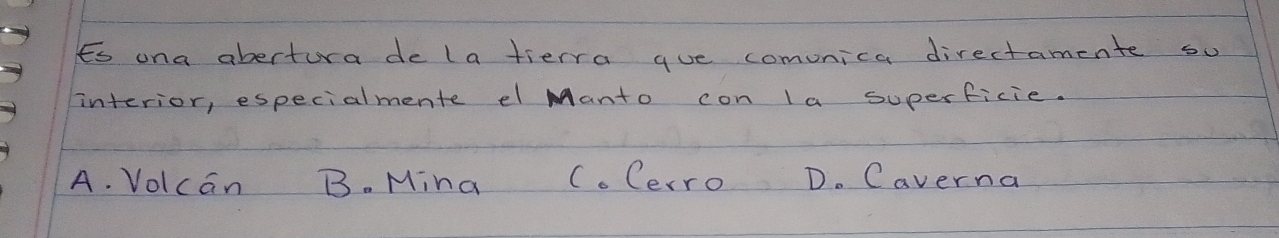 Es una abertura de la tierra que comunica directamente su
interior, especialmente el Manto con la superficie.
A. Volcán B. Mina C. Cerro D. Caverna